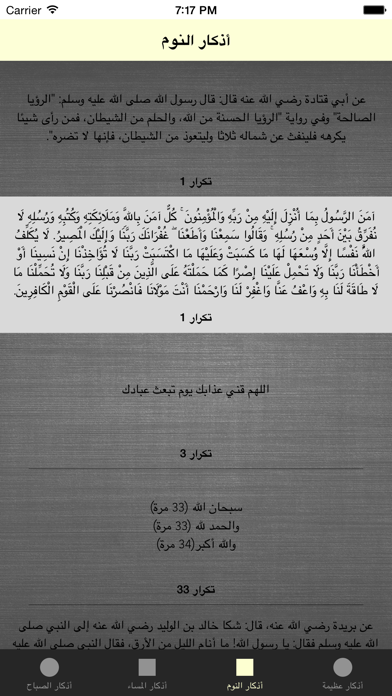 Carrier 7:17 PM
أذكار النوم
عن أبي قتادة رضي الله عنه قال: قال رسول الله صلى الله عليه وسلم: "الرؤيا
الصالحة" وفي رواية "الرؤيا الحسنة من الله، والحلم من الشيطان، فمن رأى شيئا
يكرهه فلينفث عن شماله ثلاثا وليتعوذ من الشيطان، فإنها لا تضره".
تكرار 1
آمَنَ الرَّسُولُ بِمَا أُنْزِلَ إِلَيْهِ مِنْ رَبِّهِ وَالْمُؤْمِنُونَ ۚ كُلٌّ آمَنَ بِاللَّهِ وَمَلَائِكَتِهِ وَكُتُبِهِ وَرُسُلِهِ لَا
نُفَرِّقُ بَيْنَ أَحَدٍ مِنْ رُسُلِهِ ۚ وَقَالُوا سَمِعْنَا وَأَطَعْنَا ۖ غُفْرَانَكَ رَبَّنَا وَإِلَيْكَ الْمَصِيرُ. لَا يُكَلِّفُ
اللَّهُ نَفْسًا إِلَّا وُسْعَهَا لَهَا مَا كَسَبَتْ وَعَلَيْهَا مَا اكْتَسَبَتْ رَبَّنَا لَا تُؤَاخِذْنَا إِنْ نَسِينَا أَوْ
أَخْطَأْنَا رَبَّنَا وَلَا تَحْمِلْ عَلَيْنَا إِصْرًا كَمَا حَمَلْتَهُ عَلَى الَّذِينَ مِنْ قَبْلِنَا رَبَّنَا وَلَا تُحَمِّلْنَا مَا
لَا طَاقَةَ لَنَا بِهِ وَاعْفُ عَنَّا وَاغْفِرْ لَنَا وَارْحَمْنَا أَنْتَ مَوْلَانَا فَانْصُرْنَا عَلَى الْقَوْمِ الْكَافِرِينَ.
تكرار 1
اللهم قني عذابك يوم تبعث عبادك
تكرار 3
سبحان الله (33 مرة)
والحمد لله (33 مرة)
والله أكبر(34 مرة)
تكرار 33
عن بريدة رضي الله عنه، قال: شكا خالد بن الوليد رضي الله عنه إلى النبي صلى
الله عليه وسلم فقال: يا رسول الله! ما أنام الليل من الأرق، فقال النبي صلى الله عليه
أذكار عظيمة
أذكار النوم
أذكار المساء
أذكار الصباح